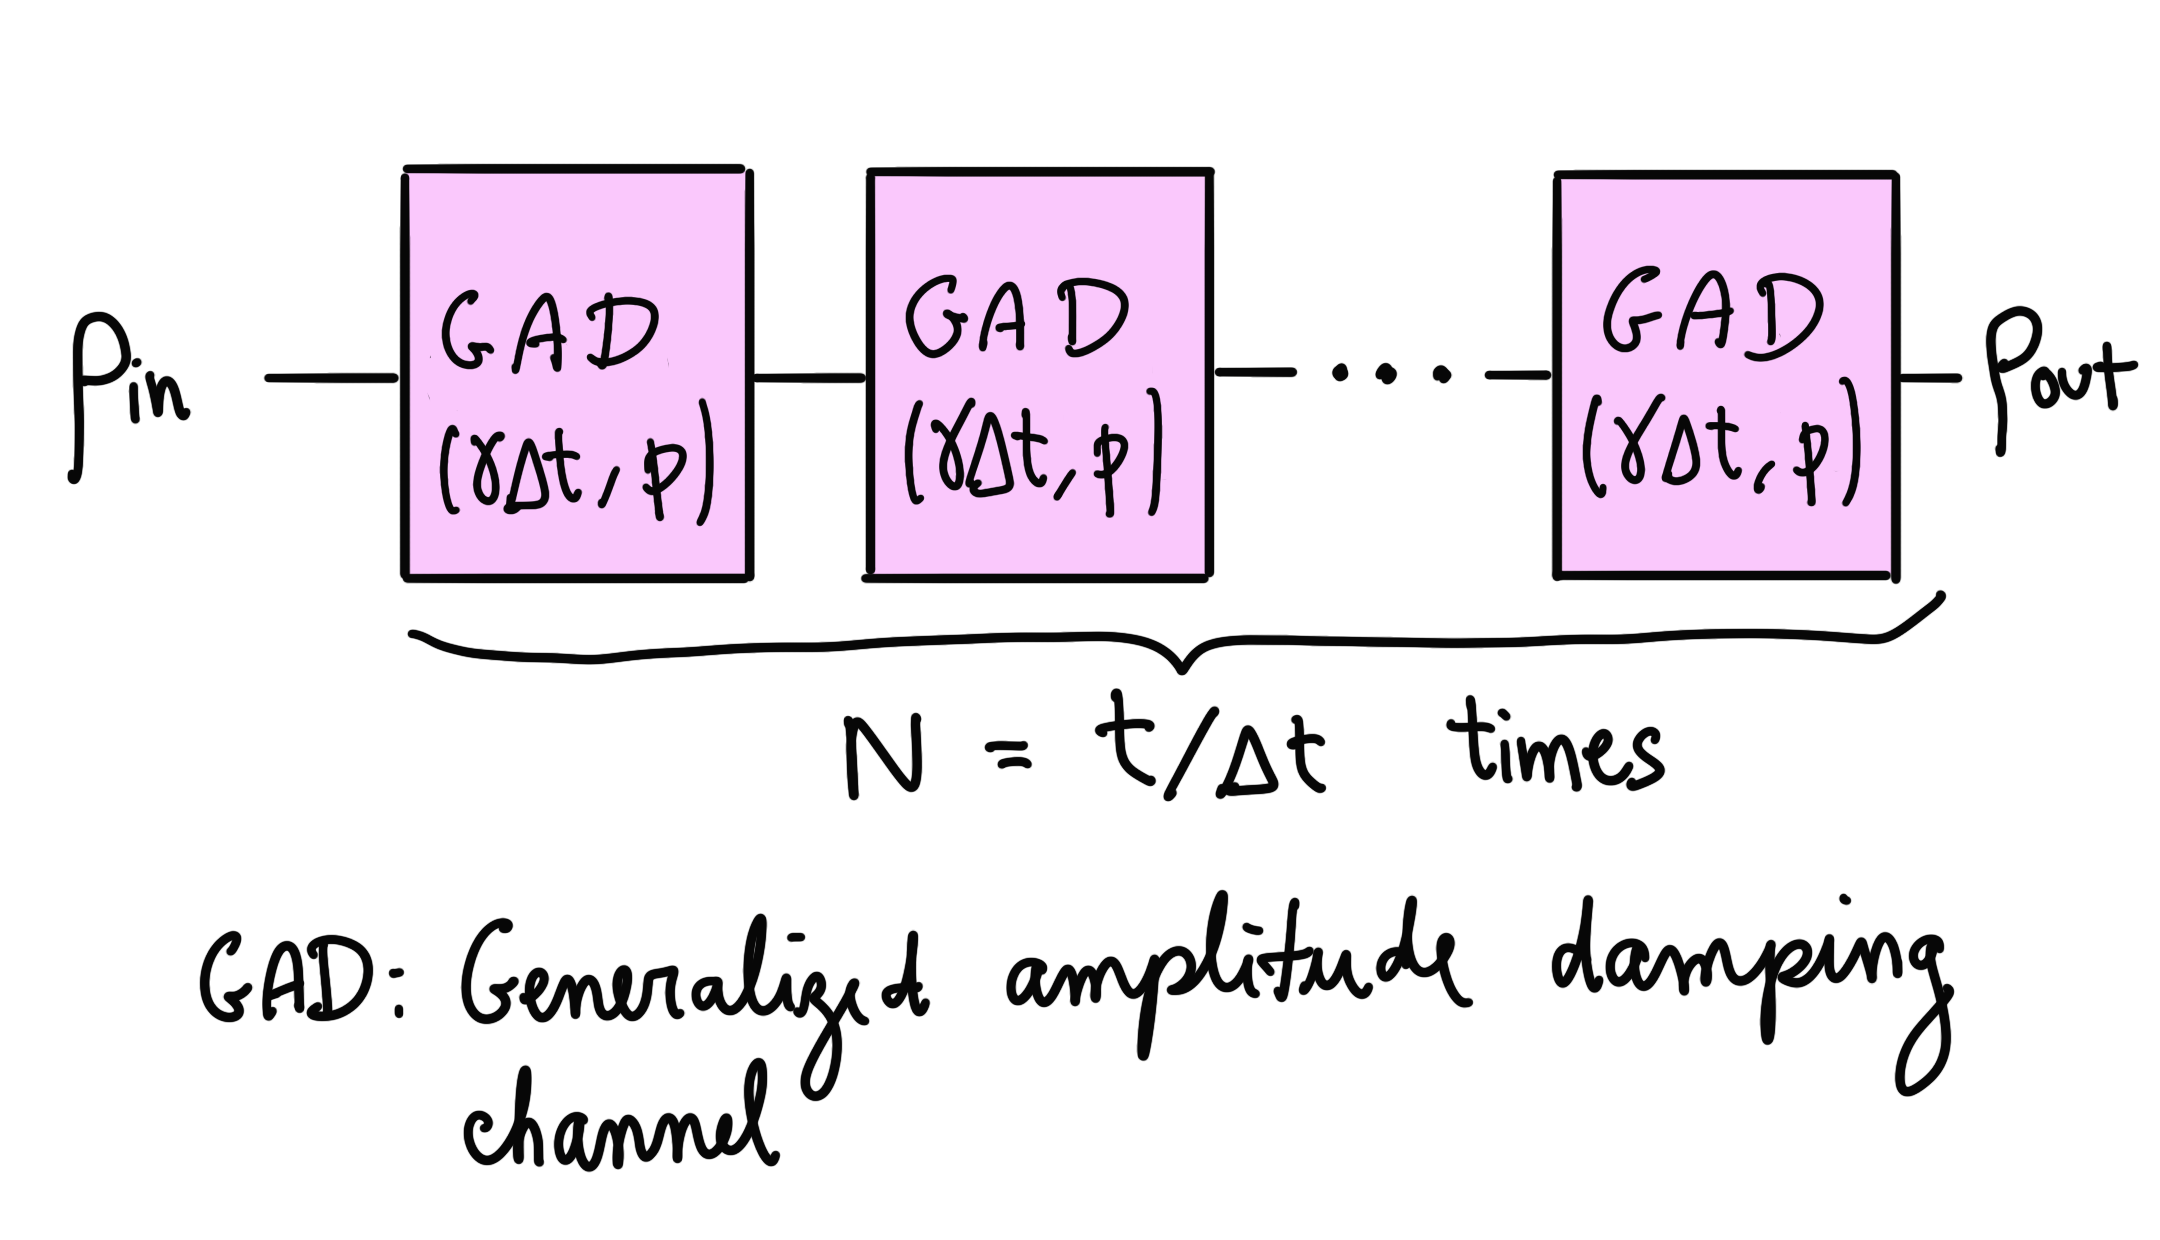 ρin GAD (γΔt, p) GAD (γΔt, p) . . . . GAD (γΔt, p) ρout
N = t/Δt times
GAD: Generalized amplitude damping
channel